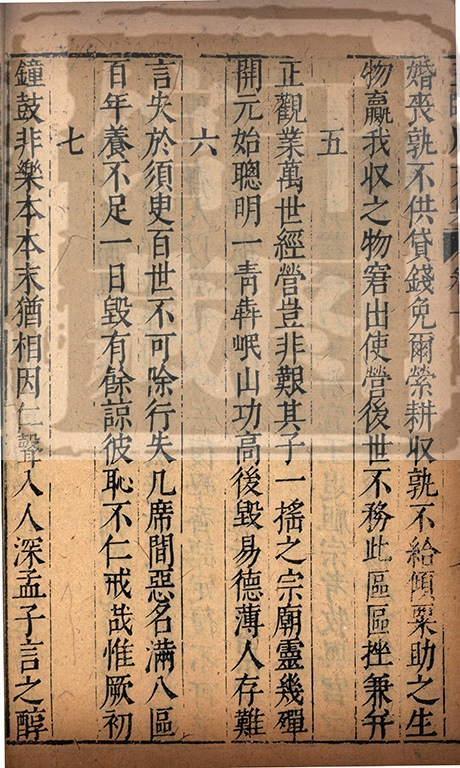 婚喪孰不供貸錢免爾縈耕収孰不給傾粟助之生
物贏我収之物窘出使營後世不務此區區挫兼并
五
正觀業萬世經營豈非艱其子一搖之宗廟靈幾殫
開元始聰明一靑犇岷山功高後毀易德薄人存難
六
言失於須臾百世不可除行失几席間惡名滿八區
百年養不足一日毀有餘諒彼恥不仁戒哉惟厥初
七
鐘鼓非樂本本末猶相因仁聲入人深孟子言之醇